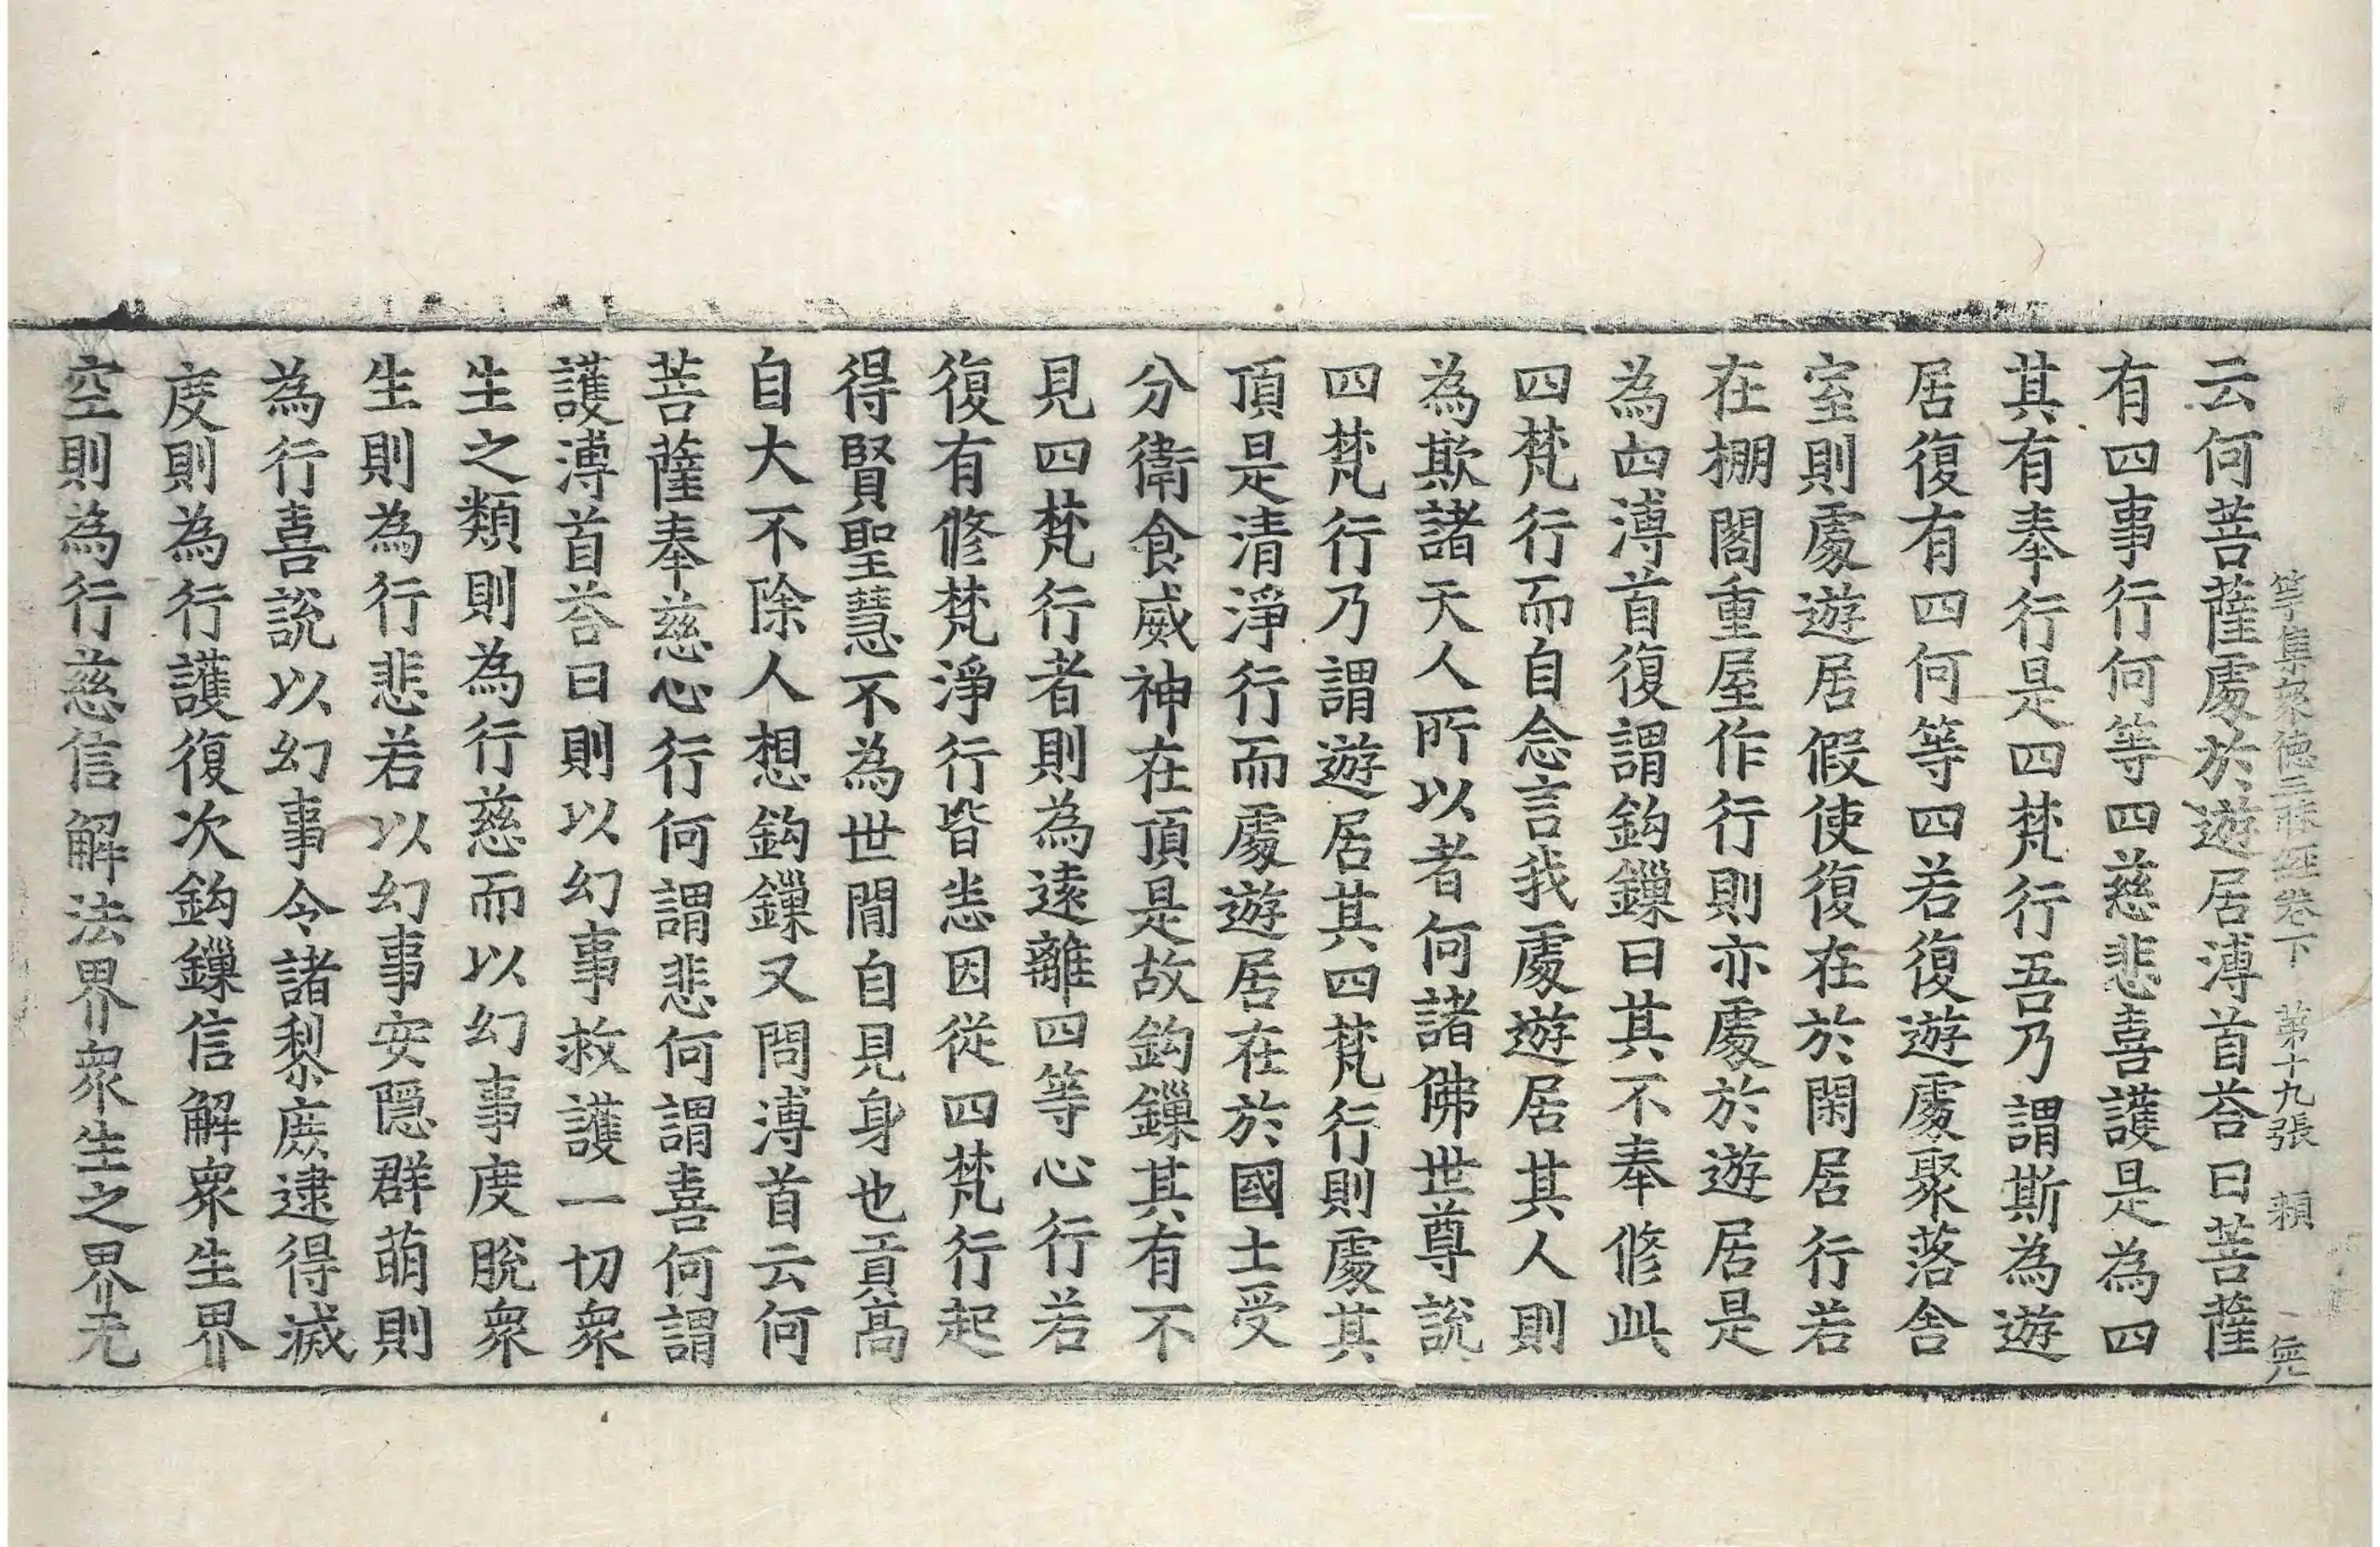 等集衆德三昧經卷下 第十九張 賴
云何菩薩處於遊居溥首荅曰菩薩
有四事行何等四慈悲喜護是為四
其有奉行是四梵行吾乃謂斯為遊
居復有四何等四若復遊處聚落舍
室則處遊居假使復在於閑居行若
在棚閣重屋作行則亦處於遊居是
為四溥首復謂鈎鏁曰其不奉修此
四梵行而自念言我處遊居其人則
為欺諸天人所以者何諸佛世尊說
四梵行乃謂遊居其四梵行則處其
頂是清淨行而處遊居在於國土受
分衛食威神在頂是故鈎鏁其有不
見四梵行者則為遠離四等心行若
復有修梵淨行皆恚因從四梵行起
得賢聖慧不為世間自見身也貢高
自大不除人想鈎鏁又問溥首云何
菩薩奉慈心行何謂悲何謂喜何謂
護溥首荅曰則以幻事救護一切衆
生之類則為行慈而以幻事度脫衆
生則為行悲若以幻事安隱群萌則
為行喜說以幻事令諸黎庶逮得滅
度則為行護復次鈎鏁信解衆生界
空則為行慈信解法界衆生之界无